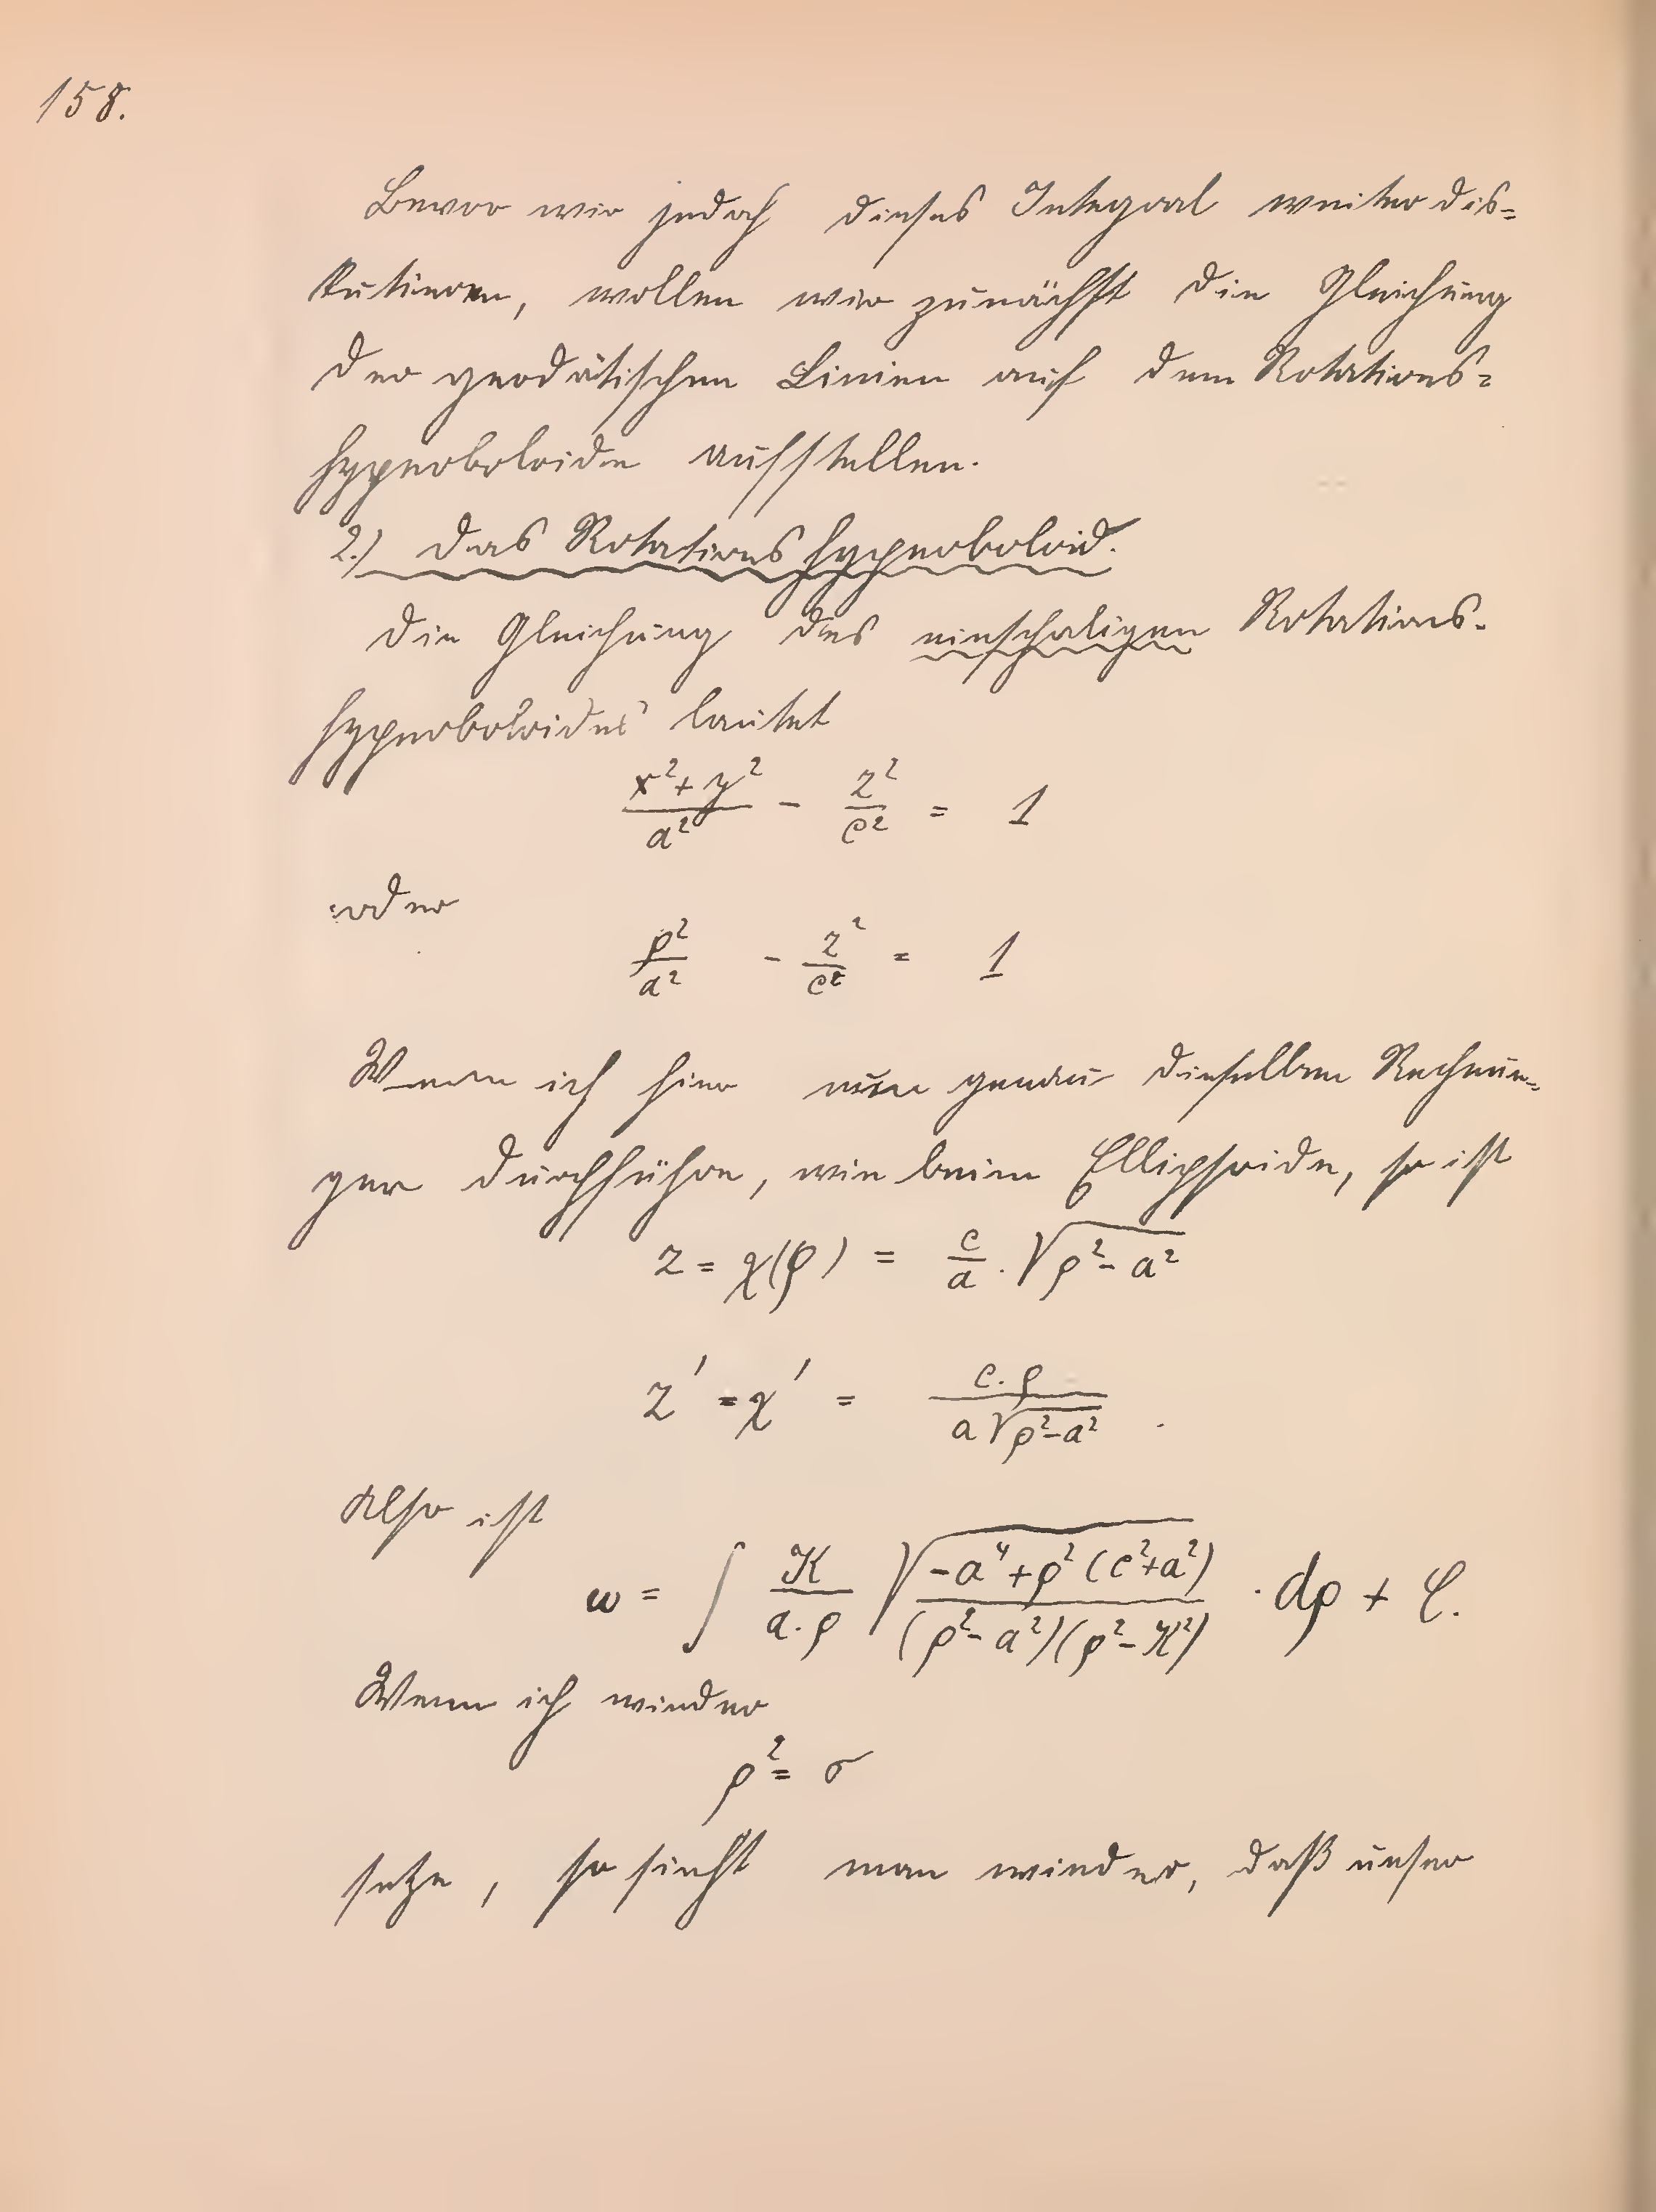 158.
Bevor wir jedoch dieses Integral weiter dis=
kutieren, wollen wir zunächst die Gleichung
der geodätischen Linien auf dem Rotations=
hyperboloide aufstellen.
2.) Das Rotationshyperboloid.
Die Gleichung des einschaligen Rotations-
hyperboloides lautet
\frac{x^2+y^2}{a^2} - \frac{z^2}{c^2} = 1
oder
\frac{ρ^2}{a^2} - \frac{z^2}{c^2} = 1
Wenn ich hier nun genau dieselben Rechnun=
gen durchführe, wie beim Ellipsoide, so ist
z = χ(ρ) = \frac{c}{a} . \sqrt{ρ^2 - a^2}
z' = χ' = \frac{c.ρ}{a\sqrt{ρ^2-a^2}} .
Also ist
ω = ∫ \frac{K}{a.ρ} \sqrt{\frac{-a^4+ρ^2(c^2+a^2)}{(ρ^2-a^2)(ρ^2-K^2)}} · dρ + C.
Wenn ich wieder
ρ^2 = σ
setze, so sieht man wieder, daß unser